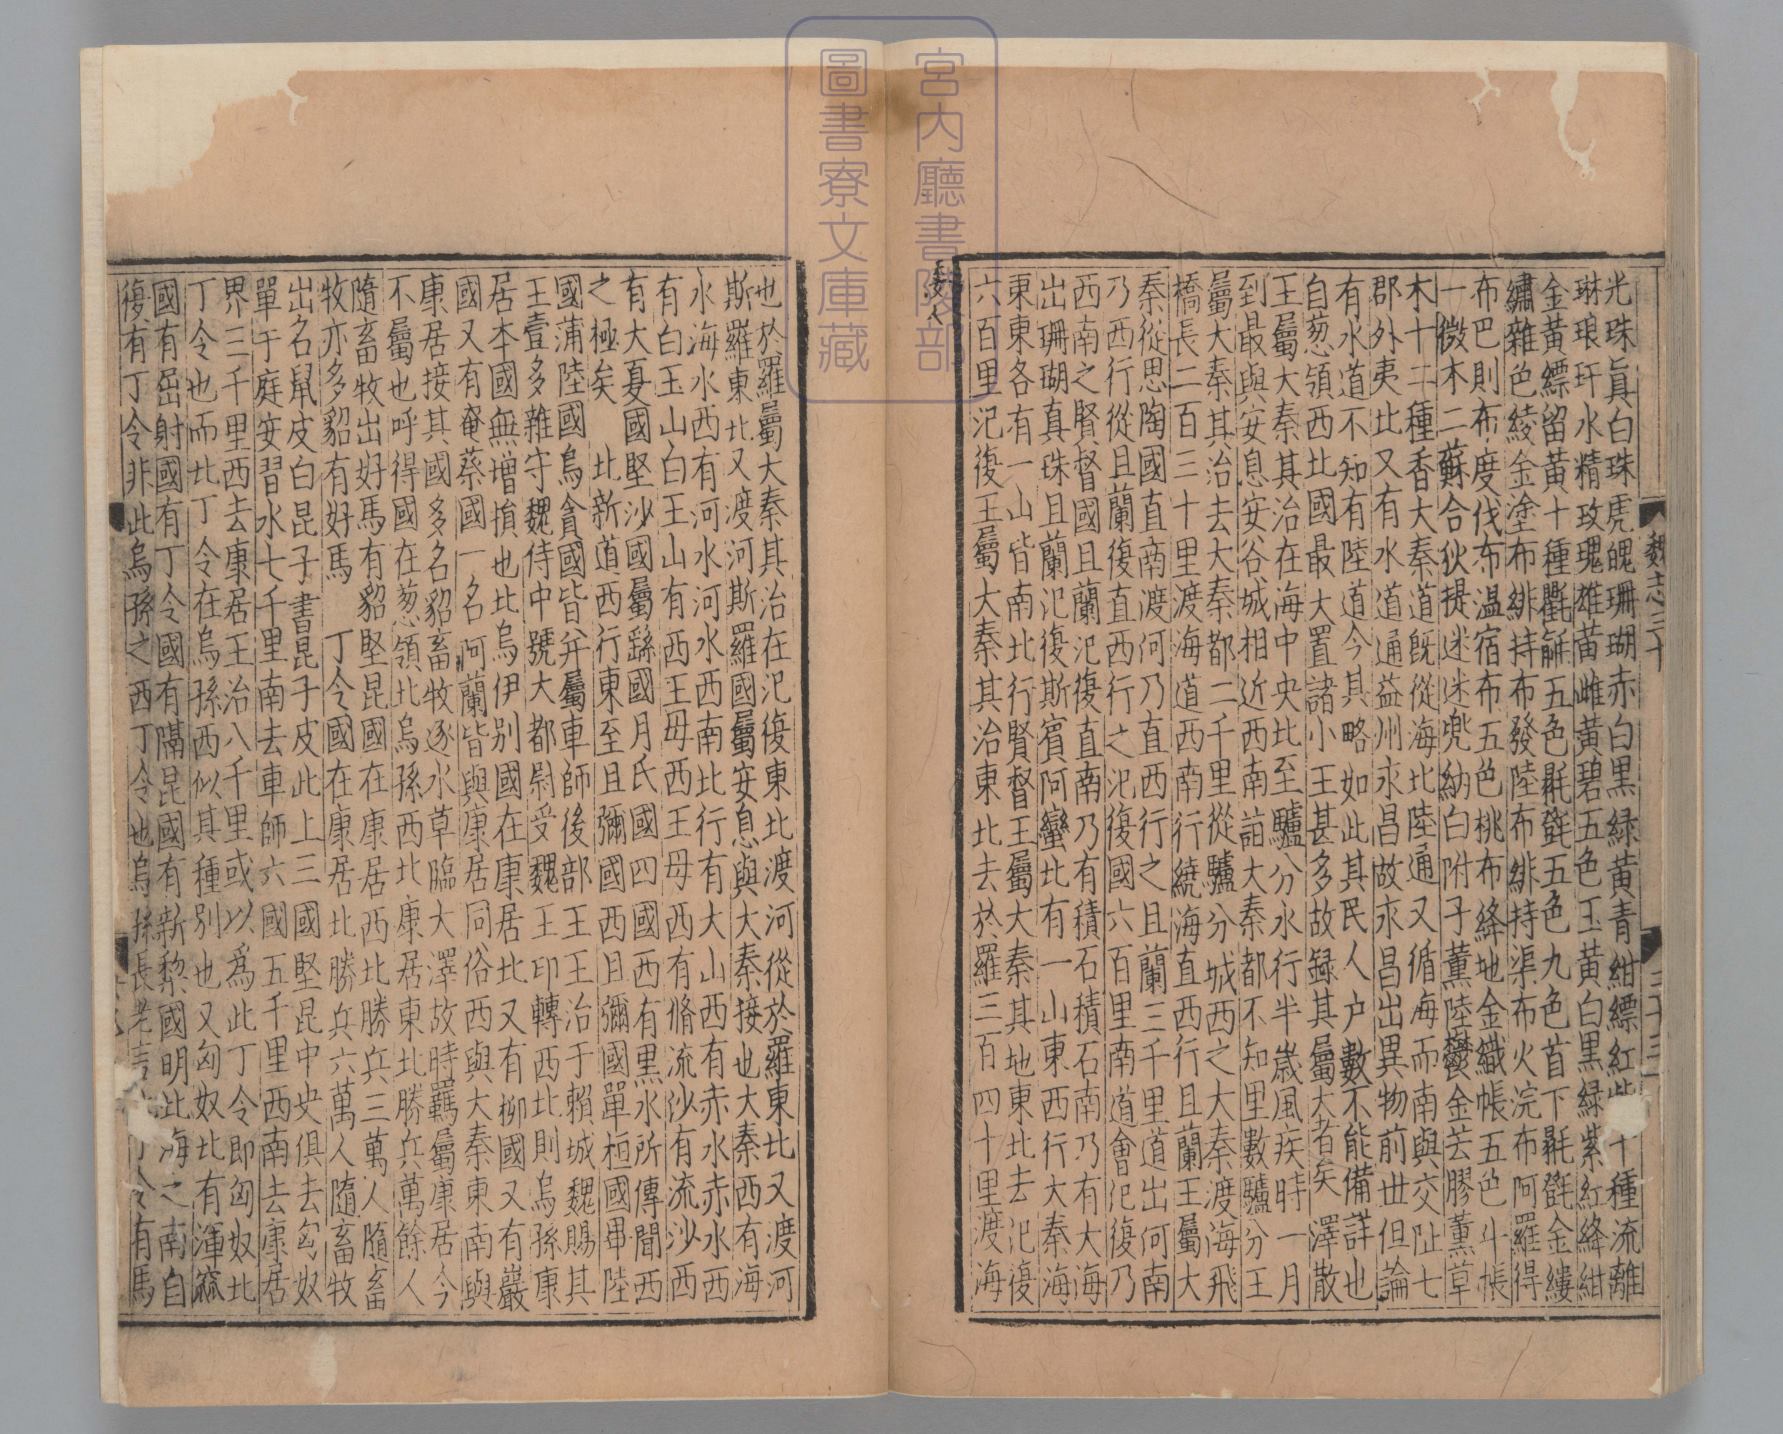 光珠眞白珠虎魄珊瑚赤白黑緑黄青紺縹紅紫十種流離
琳琅玕水精玫瑰雄黄雌黄碧五色玉黄白黑緑紫紅絳紺
金黄縹留黄十種氍毹五色毾㲪五色九色首下毾㲪金縷
繡雜色綾金塗布緋持布發陸布緋持渠布火浣布阿羅得
布巴則布度伐布温宿布五色桃布絳地金織帳五色斗帳
一微木二蘇合狄提迷迷兜納白附子薰陸鬱金芸膠薰草
木十二種香大秦道既從海北陸通又循海而南與交阯七
郡外夷比又有水道通益州永昌故永昌出異物前世但論
有水道不知有陸道今其略如此其民人户數不能備詳也
自葱領西北國最大置諸小王甚多故録其屬大者矣澤散
王屬大秦其治在海中央北至驢分水行半歲風疾時一月
到最與安息安谷城相近西南詣大秦都不知里數驢分王
屬大秦其治去大秦都二千里從驢分城西之大秦渡海飛
橋長二百三十里渡海道西南行繞海直西行且蘭王屬大
秦從思陶國直南渡河乃直西行之且蘭三千里道出河南
乃西行從且蘭復直西行之汜復國六百里南道會汜復乃
西南之賢督國且蘭汜復直南乃有積石積石南乃有大海
出珊瑚真珠且蘭汜復斯賓阿蠻北有一山東西行大秦海
東東各有一山皆南北行賢督王屬大秦其治東北去汜復
六百里汜復王屬大秦其治東北去於羅三百四十里渡海
魏志三十
三十三
也於羅屬大秦其治在汜復東北渡河從於羅東北又渡河
斯羅東北又渡河斯羅國屬安息與大秦接也大秦西有海
水海水西有河水河水西南北行有大山西有赤水赤水西
有白玉山白玉山有西王母西王母西有脩流沙流沙西
有大夏國堅沙國屬繇國月氏國四國西有黑水所傳聞西
之極矣 北新道西行東至且彌國西且彌國單桓國畢陸
國蒲陸國烏貪國皆并屬車師後部王王治于賴城魏賜其
王壹多雜守魏侍中號大都尉受魏王印轉西北則烏孫康
居本國無增損也北烏伊别國在康居北又有柳國又有巖
國又有奄蔡國一名阿蘭皆與康居同俗西與大秦東南與
康居接其國多名貂畜牧逐水草臨大澤故時羈屬康居今
不屬也呼得國在葱領北烏孫西北康居東北勝兵萬餘人
隨畜牧出好馬有貂堅昆國在康居西北勝兵三萬人隨畜
牧亦多貂有好馬 丁令國在康居北勝兵六萬人隨畜牧
出名鼠皮白昆子青昆子皮此上三國堅昆中央俱去匈奴
單于庭安習水七千里南去車師六國五千里西南去康居
界三千里西去康居王治八千里或以爲此丁令即匈奴北
丁令也而北丁令在烏孫西似其種别也又匈奴北有渾窳
國有屈射國有丁令國有隔昆國有新黎國明北海之南自
復有丁令非此烏孫之西丁令也烏孫長老言北丁令有馬
宮内廳書陵部
圖書寮文庫藏